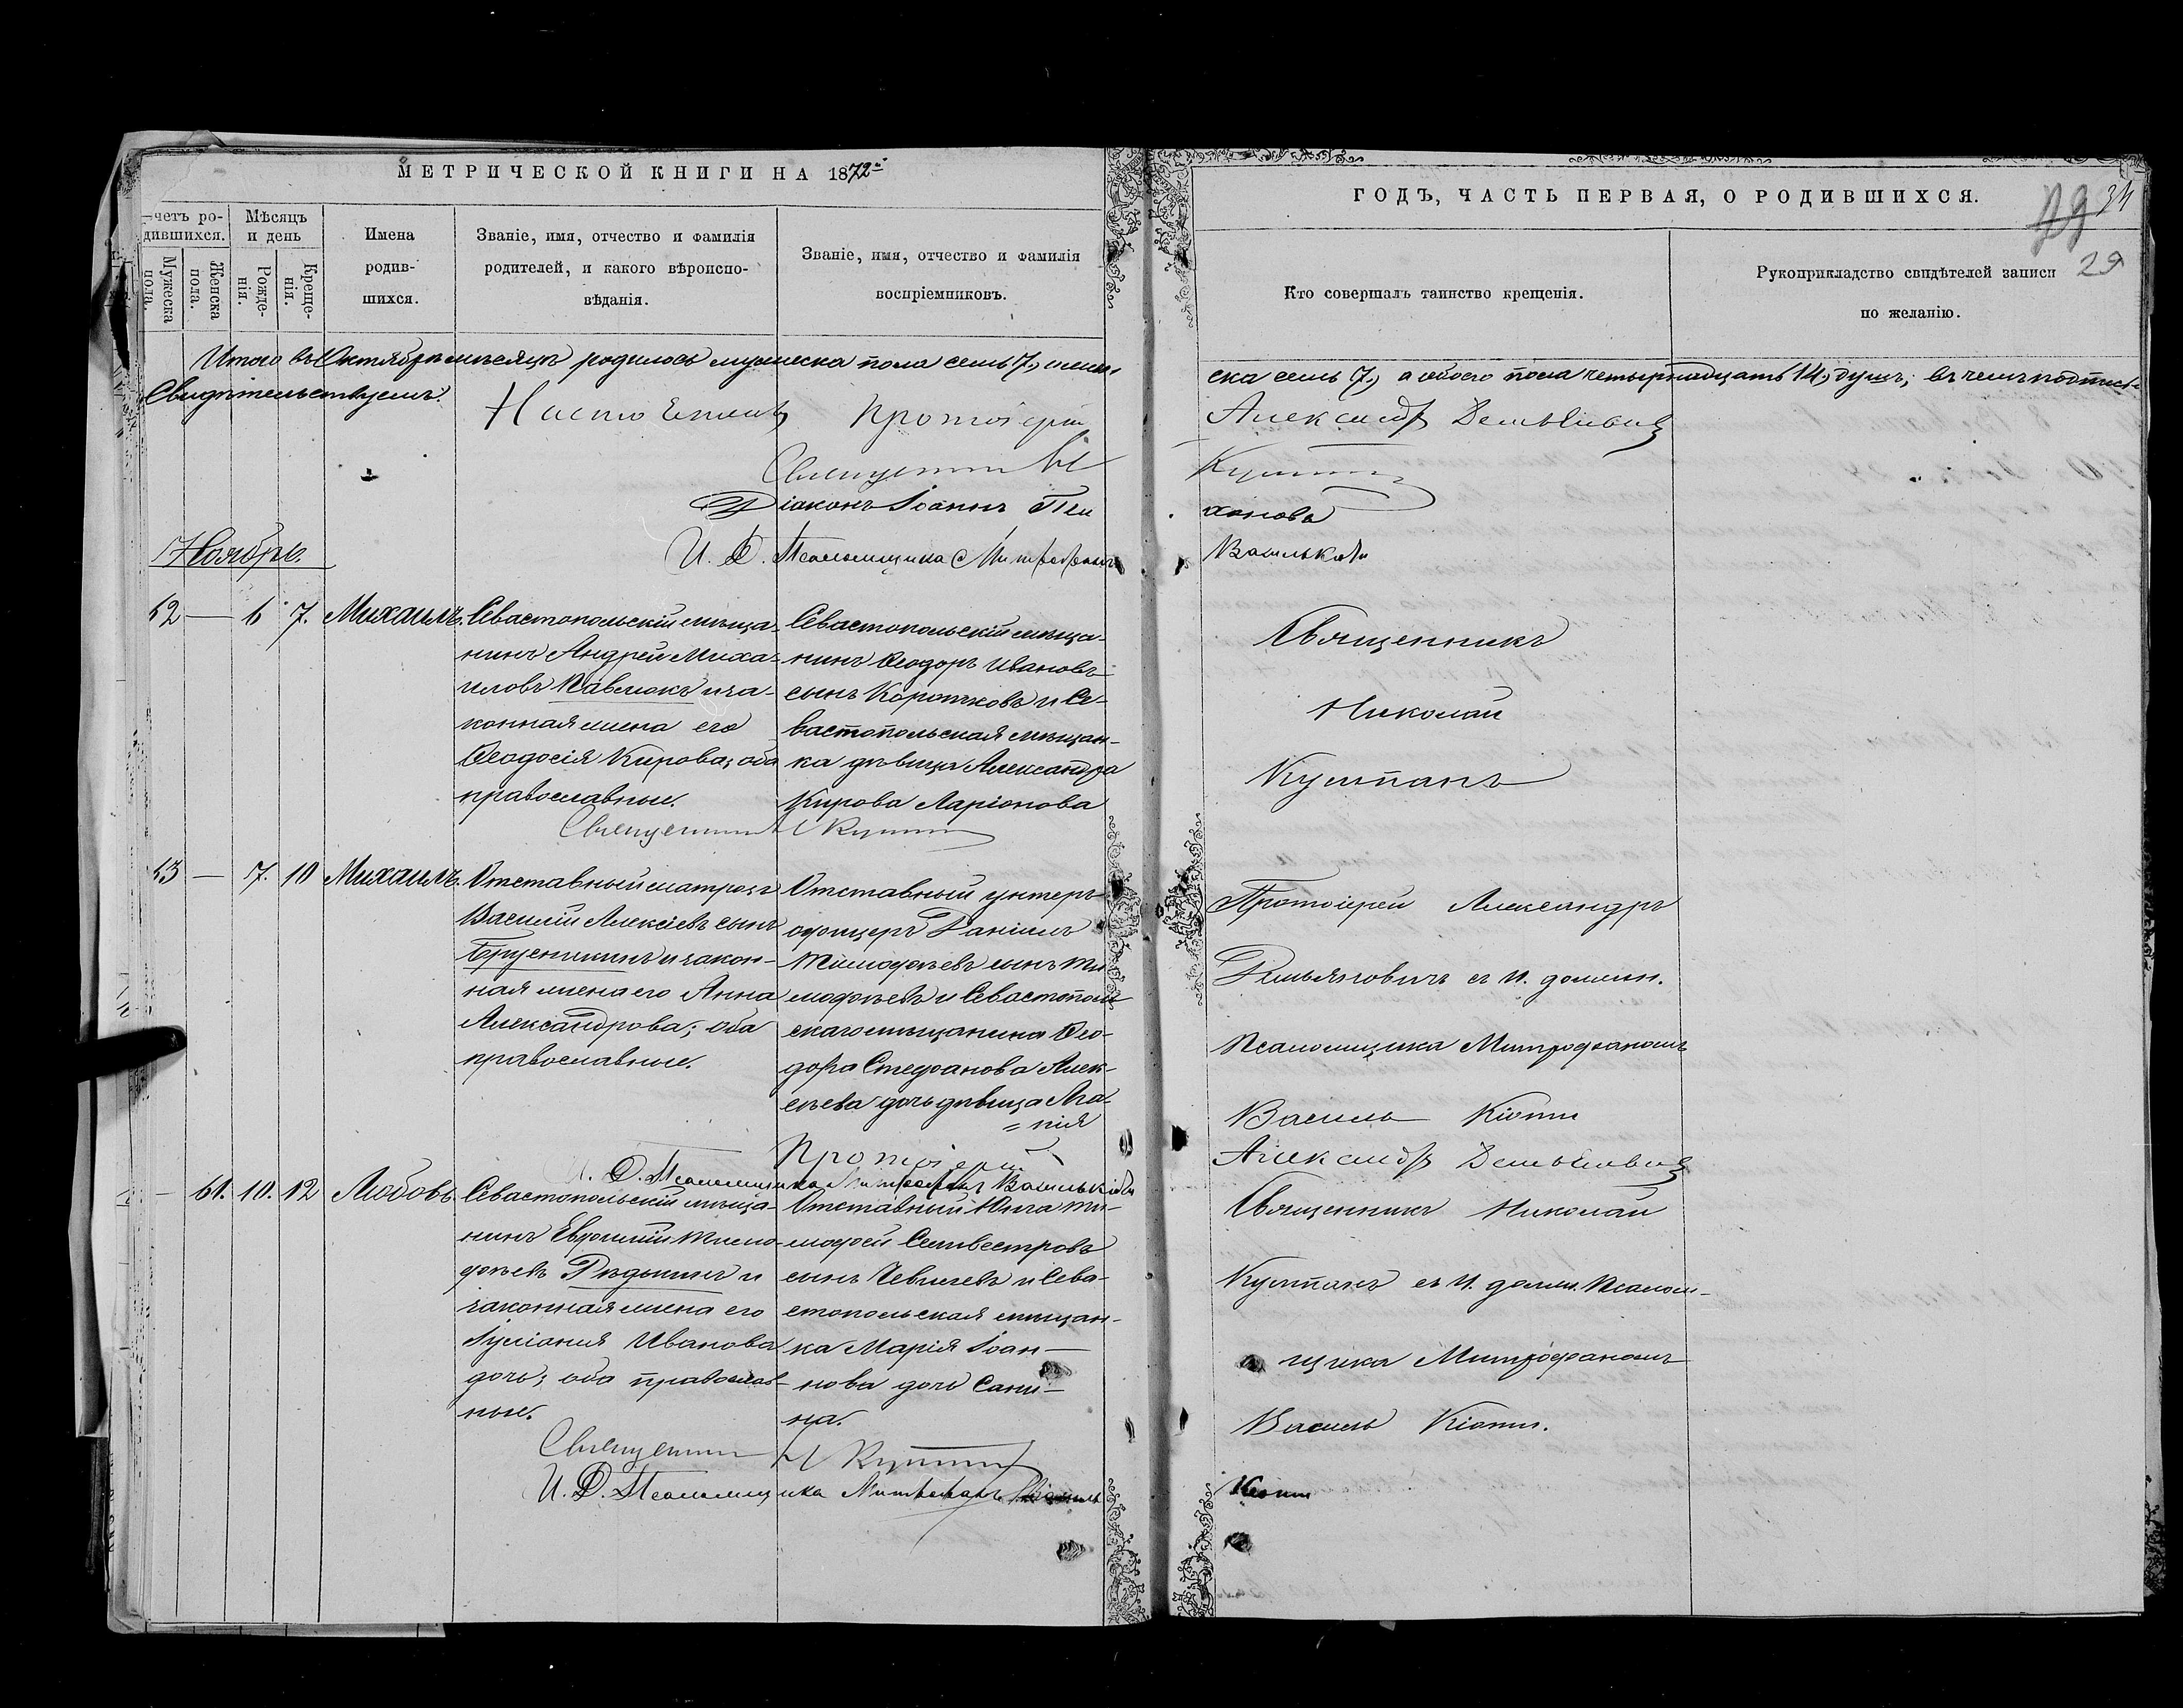 МЕТРИЧЕСКОЙ КНИГИ НА 1872й
ГОДЪ, ЧАСТЬ ПЕРВАЯ, О РОДИВШИХСЯ.
29
четъ ро-
дившихся.
Мужеска пола.
Женска пола.
Мѣсяцъ и день
Рожде-
нія.
Креще-
нія.
Имена
родив-
шихся.
Званіе, имя, отчество и фамилія
родителей, и какого вѣроиспо-
вѣданія.
Званіе, имя, отчество и фамилія
воспріемниковъ.
Кто совершалъ таинство крещенія.
Рукоприкладство свидѣтелей записи
по желанію.
Итого въ Октябрѣ мѣсяцѣ родилось мужеска пола семь 7, женс
ска семь 7, а обоего пола четырнадцать 14, душъ; въ чемъ подпис
Свидѣтельствуемъ:
Протоіерей
Александръ Демьяновичъ
Діаконъ Іоаннъ
И. Д. Псаломщика Митрофанъ
Ноябрь.
52 — 6 7. Михаилъ.
Севастопольскій мѣща-
нинъ Андрей Миха-
иловъ Павлюкъ и за-
конная жена его
Ѳеодосія Кирова; оба
православные.
Севастопольскій мѣща-
нинъ Ѳеодоръ Ивановъ
сынъ Коротковъ и Се-
вастопольская мѣщан-
ка дѣвица Александра
Кирова Ларіонова
Священникъ
Николай
53 — 7. 10 Михаилъ.
Отставный матрозъ
Василій Алексѣевъ сынъ
Брусникинъ и закон-
ная жена его Анна
Александрова; оба
православные.
Отставный унтеръ
офицеръ Даніилъ
Тимофѣевъ сынъ Ти
мофѣевъ и Севастополь
скаго мѣщанина Ѳео-
дора Стефанова Алек-
сѣева дочь дѣвица Ага-
=пія
Протоіерей Александръ
Демьяновичъ съ и. должн.
Псаломщика Митрофаномъ
Василь Кіоти
Протоіерей
Александръ Демьяновичъ
И. Д. Псаломщика Митрофанъ
— 61. 10. 12 Любовь.
Севастопольскій мѣща-
нинъ Евфимій Тимо-
фѣевъ Рѣдькинъ и
законная жена его
Іуліанія Иванова
дочь; оба православ-
ные.
Отставный Юнга Ти-
мофей Селивестровъ
сынъ Чевычевъ и Сева-
стопольская мѣщан-
ка Марія Іоан-
нова дочь Сани-
на.
Священникъ Николай
съ и. должн. Псалом-
щика Митрофаномъ
Василь Кіоти.
И. Д. Псаломщика Митрофанъ